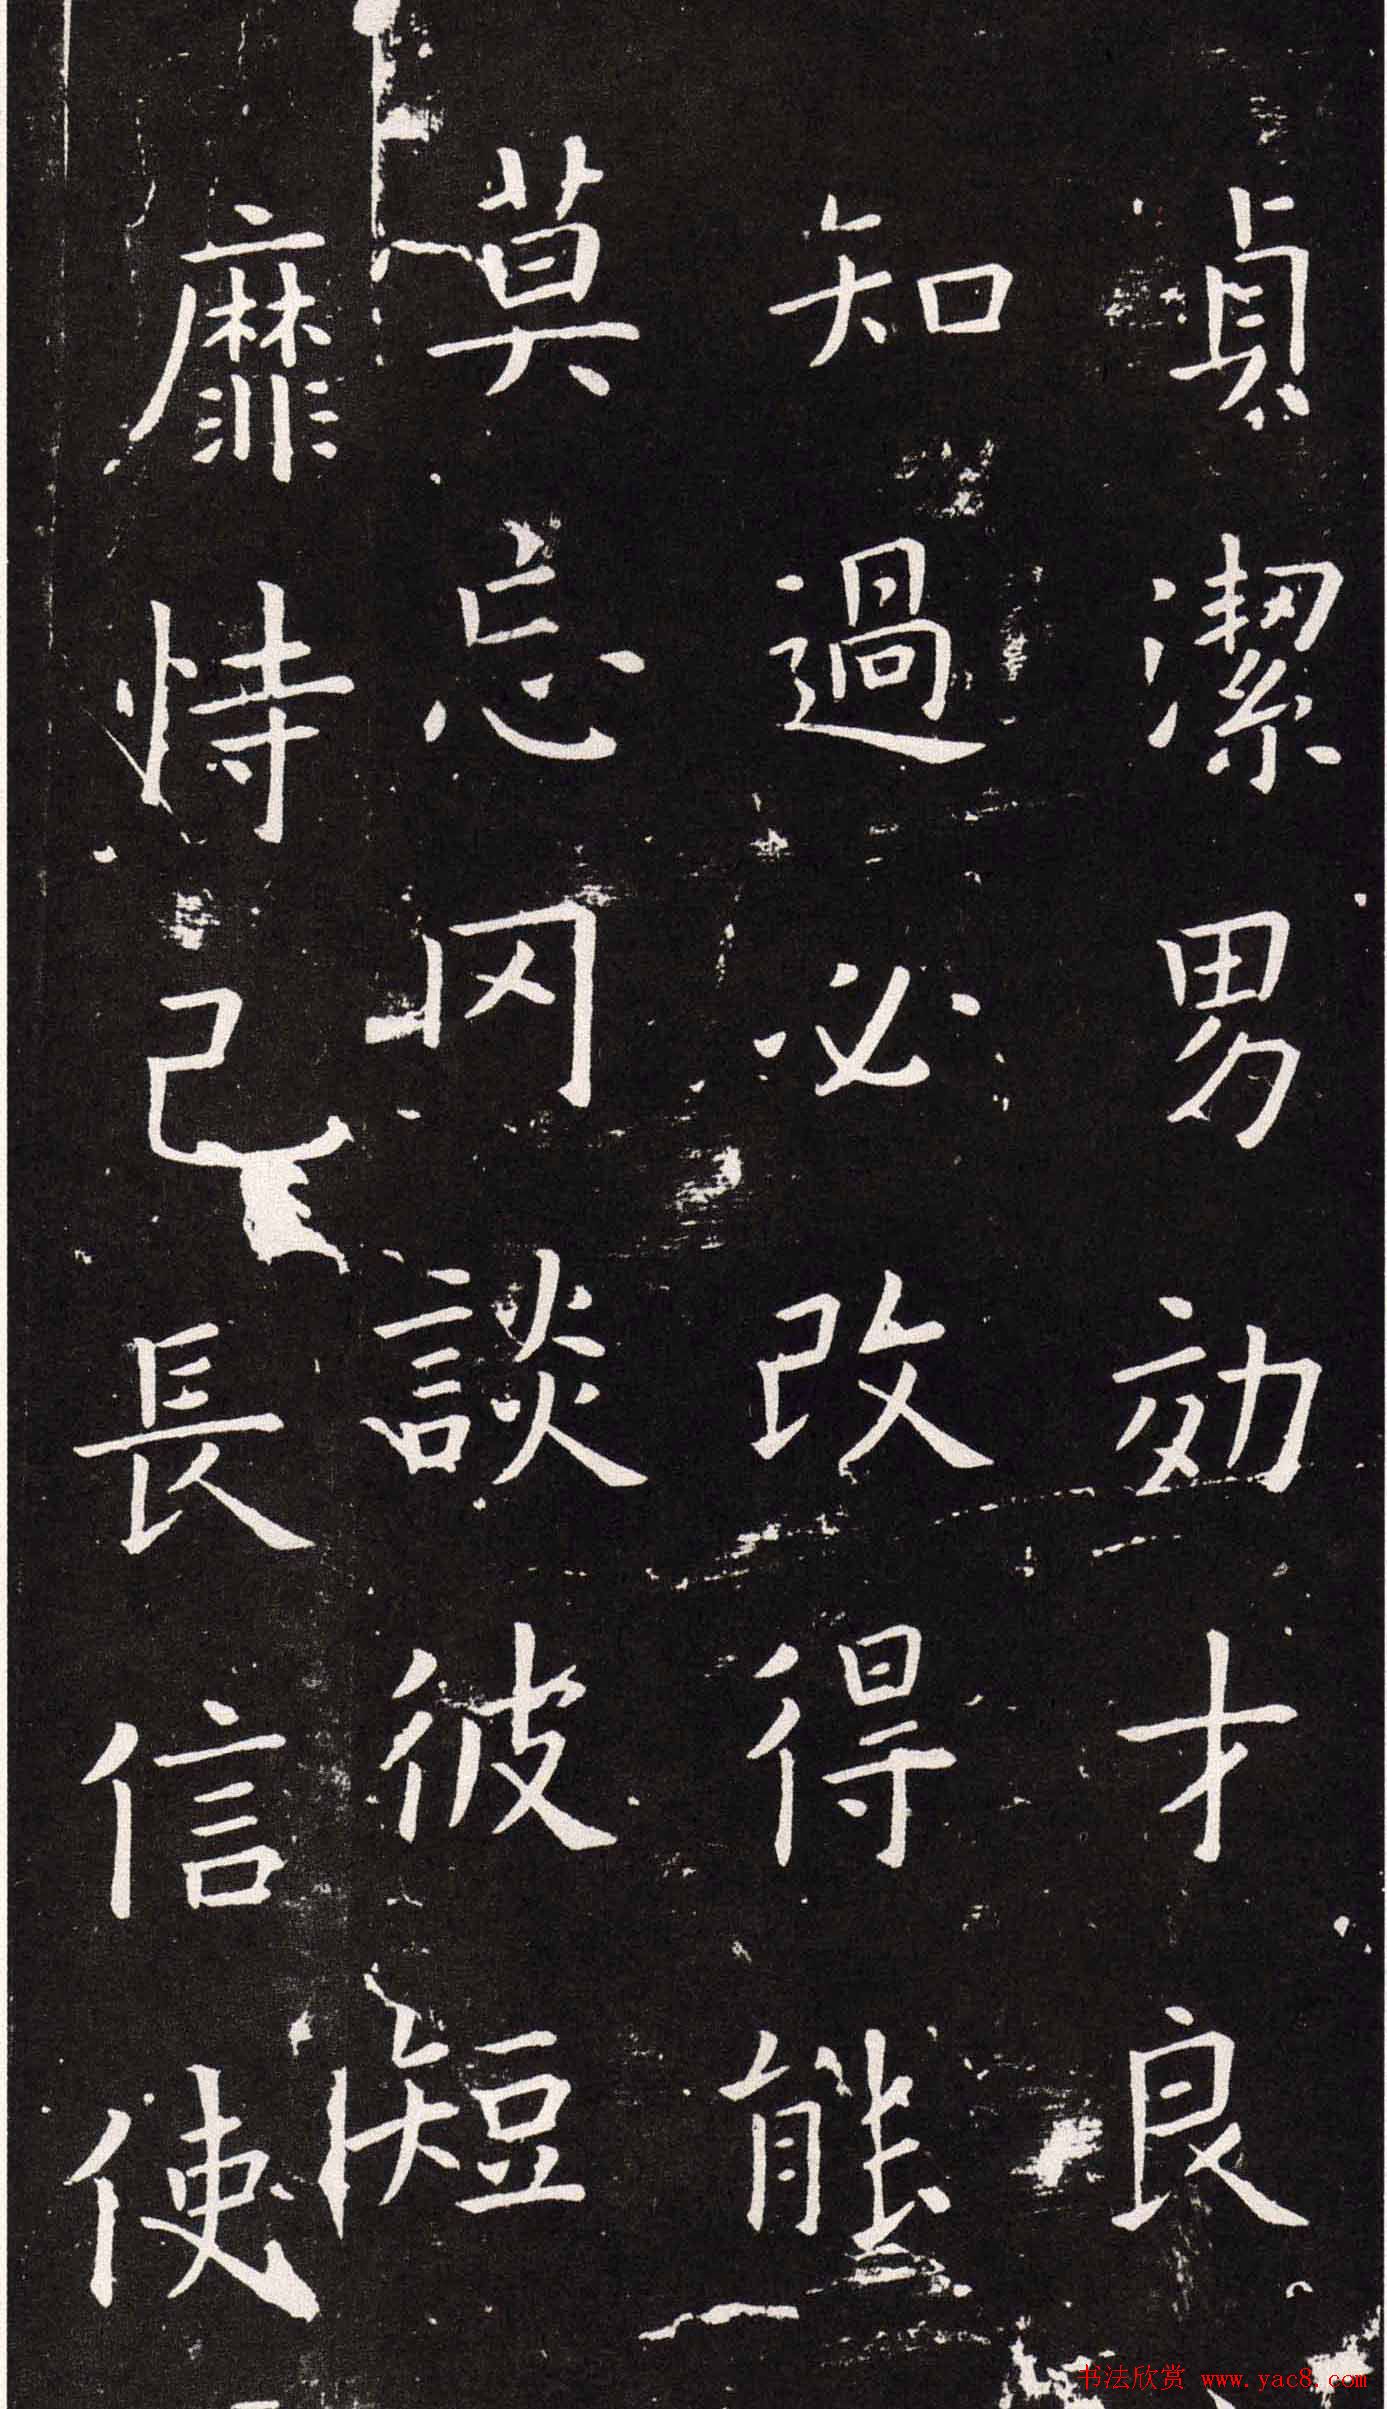 貞潔男効才良
知過必改得能
莫忘罔談彼短
靡恃己長信使
书法欣赏 www.yac8.com